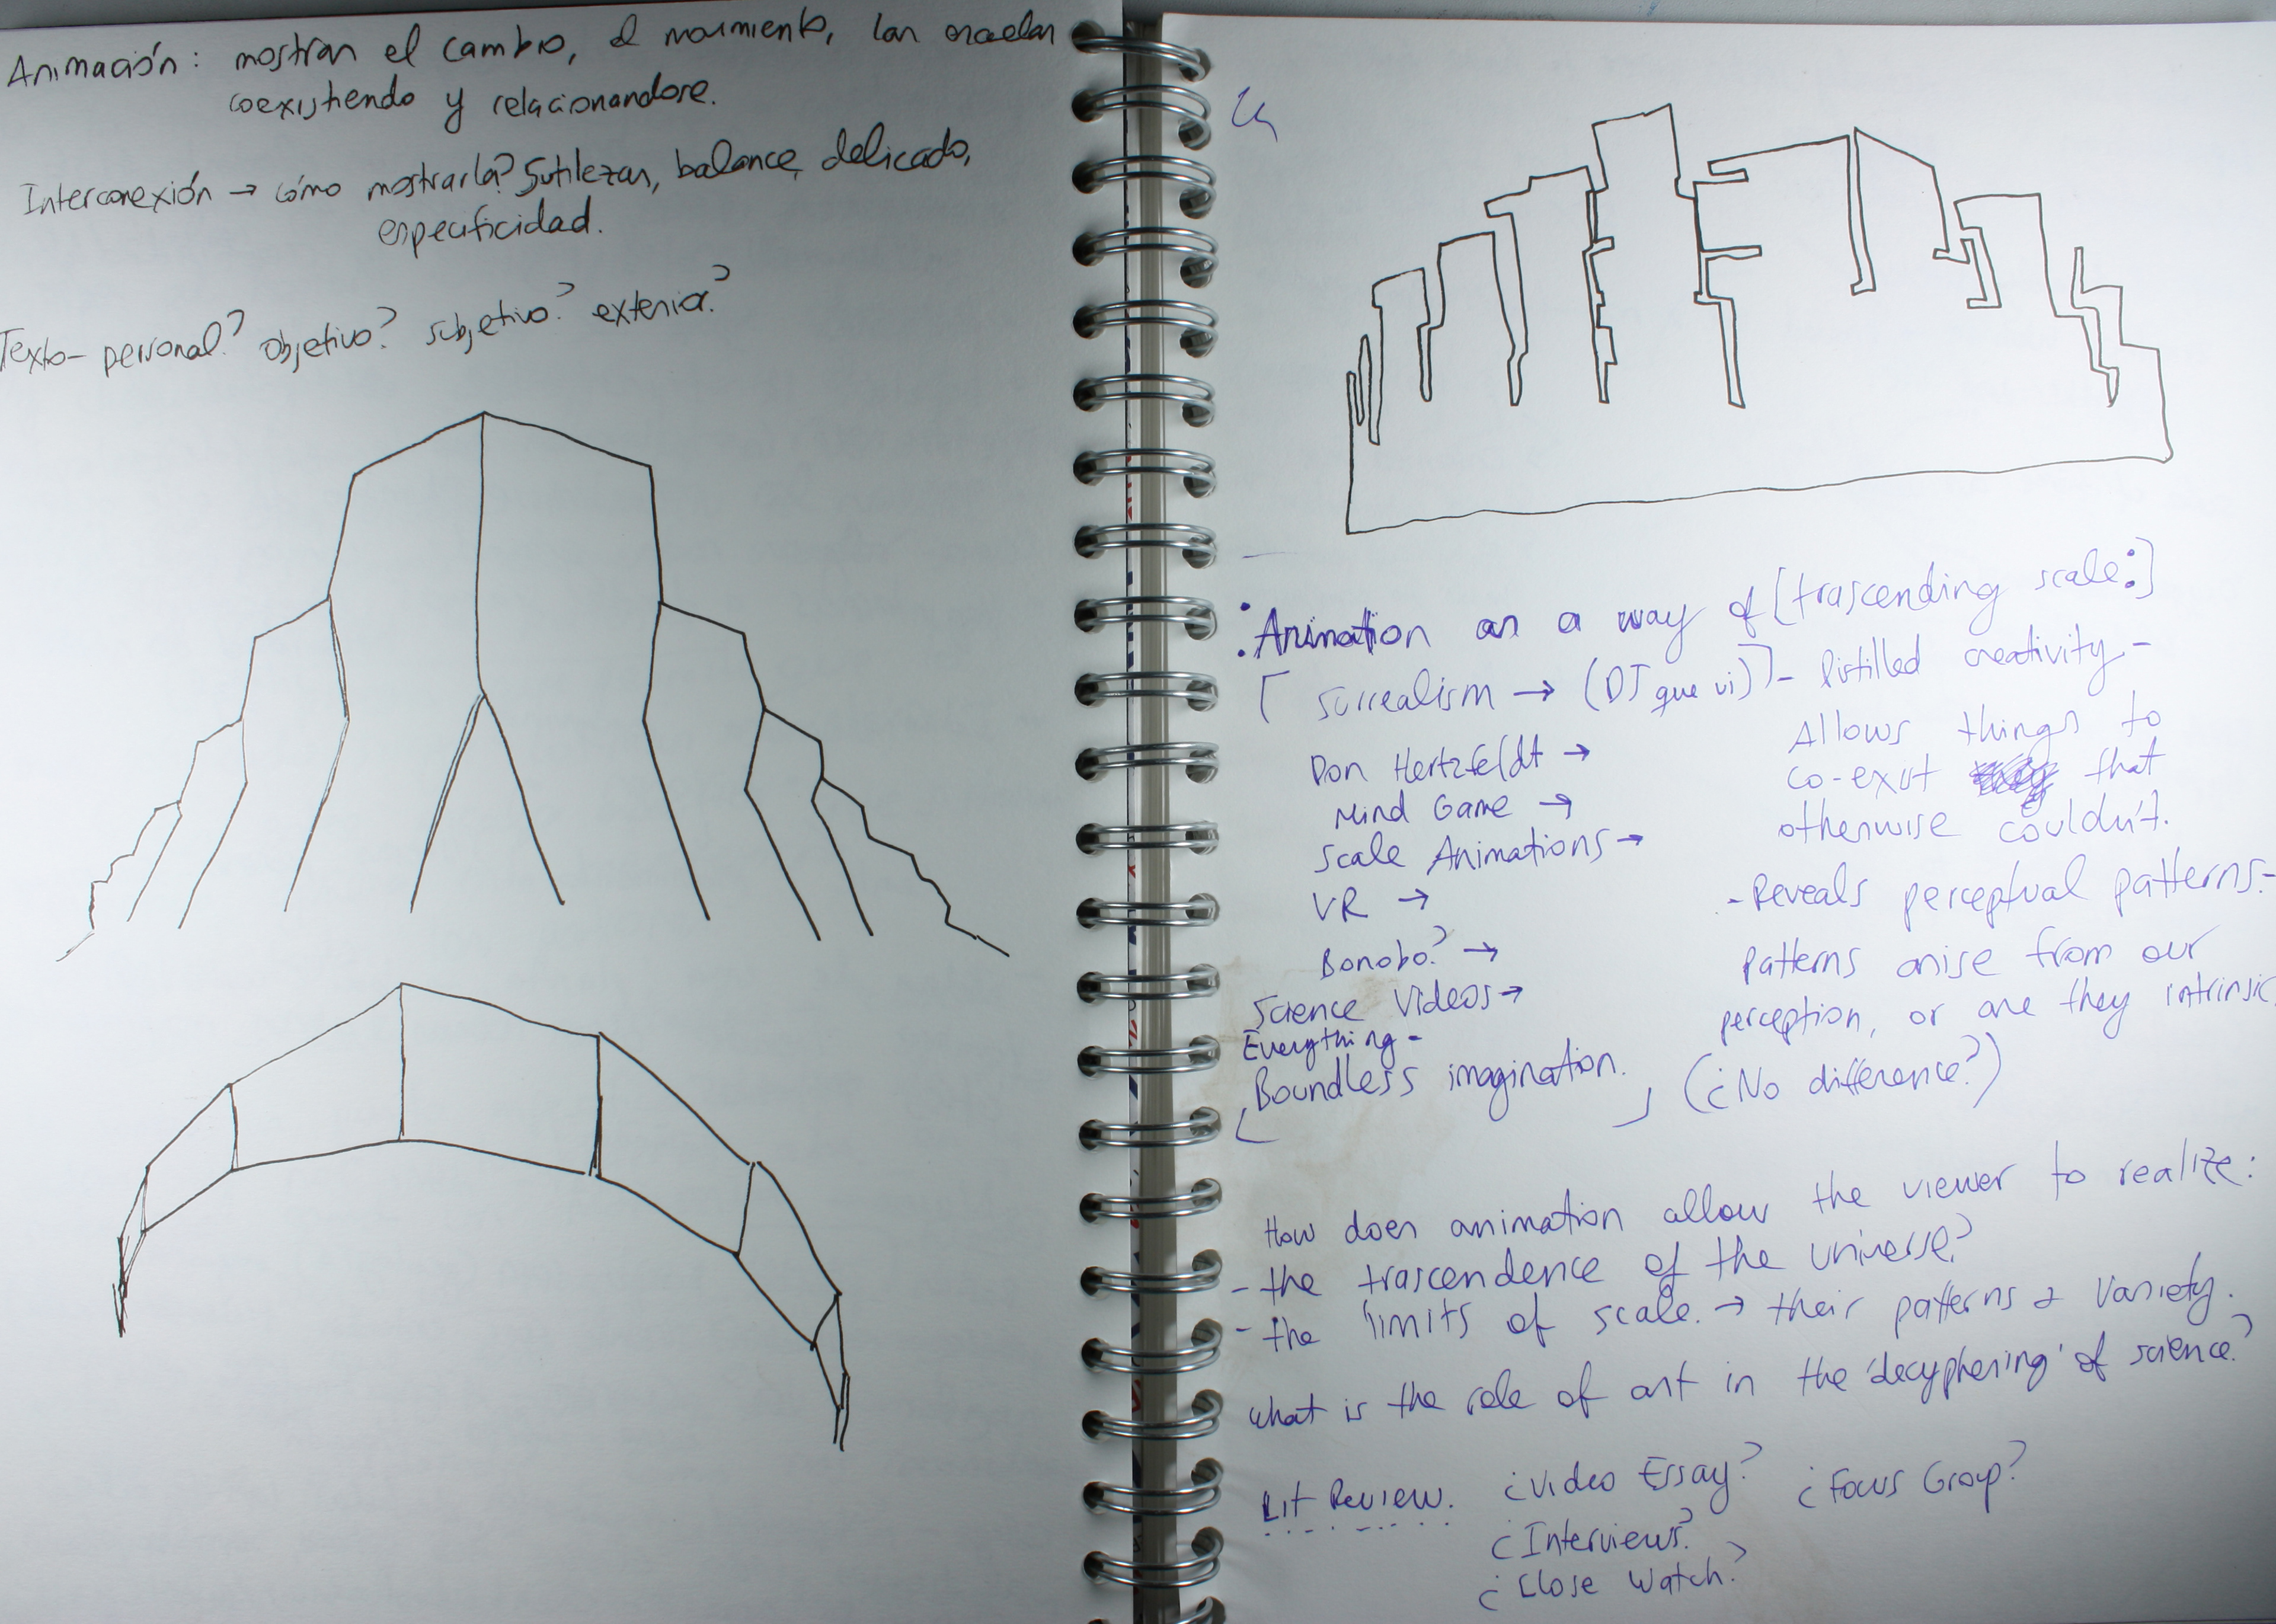 Animación: mostrar el cambio, el movimiento, las escalas
coexistiendo y relacionandose.
Interconexión → cómo mostrarla? Sutilezas, balance delicado,
especificidad.
Texto- personal? objetivo? subjetivo? exterior?
: Animation as a way of [trascending scale:]
[ Surrealism → (DJ que vi)] - Distilled creativity -
Don Hertzfeldt →
Mind Game →
Scale Animations →
VR →
Bonobo? →
Science Videos →
Everything -
Boundless imagination.
Allows things to
co-exist that
otherwise couldn't.
- Reveals perceptual patterns. -
Patterns arise from our
perception, or are they intrinsic
(¿No difference?)
How does animation allow the viewer to realize:
- the trascendence of the universe?
- the limits of scale. → their patterns & variety.
What is the role of art in the 'decyphering' of science?
Lit Review. ¿Video Essay? ¿Focus Group?
¿Interviews?
¿Close Watch?